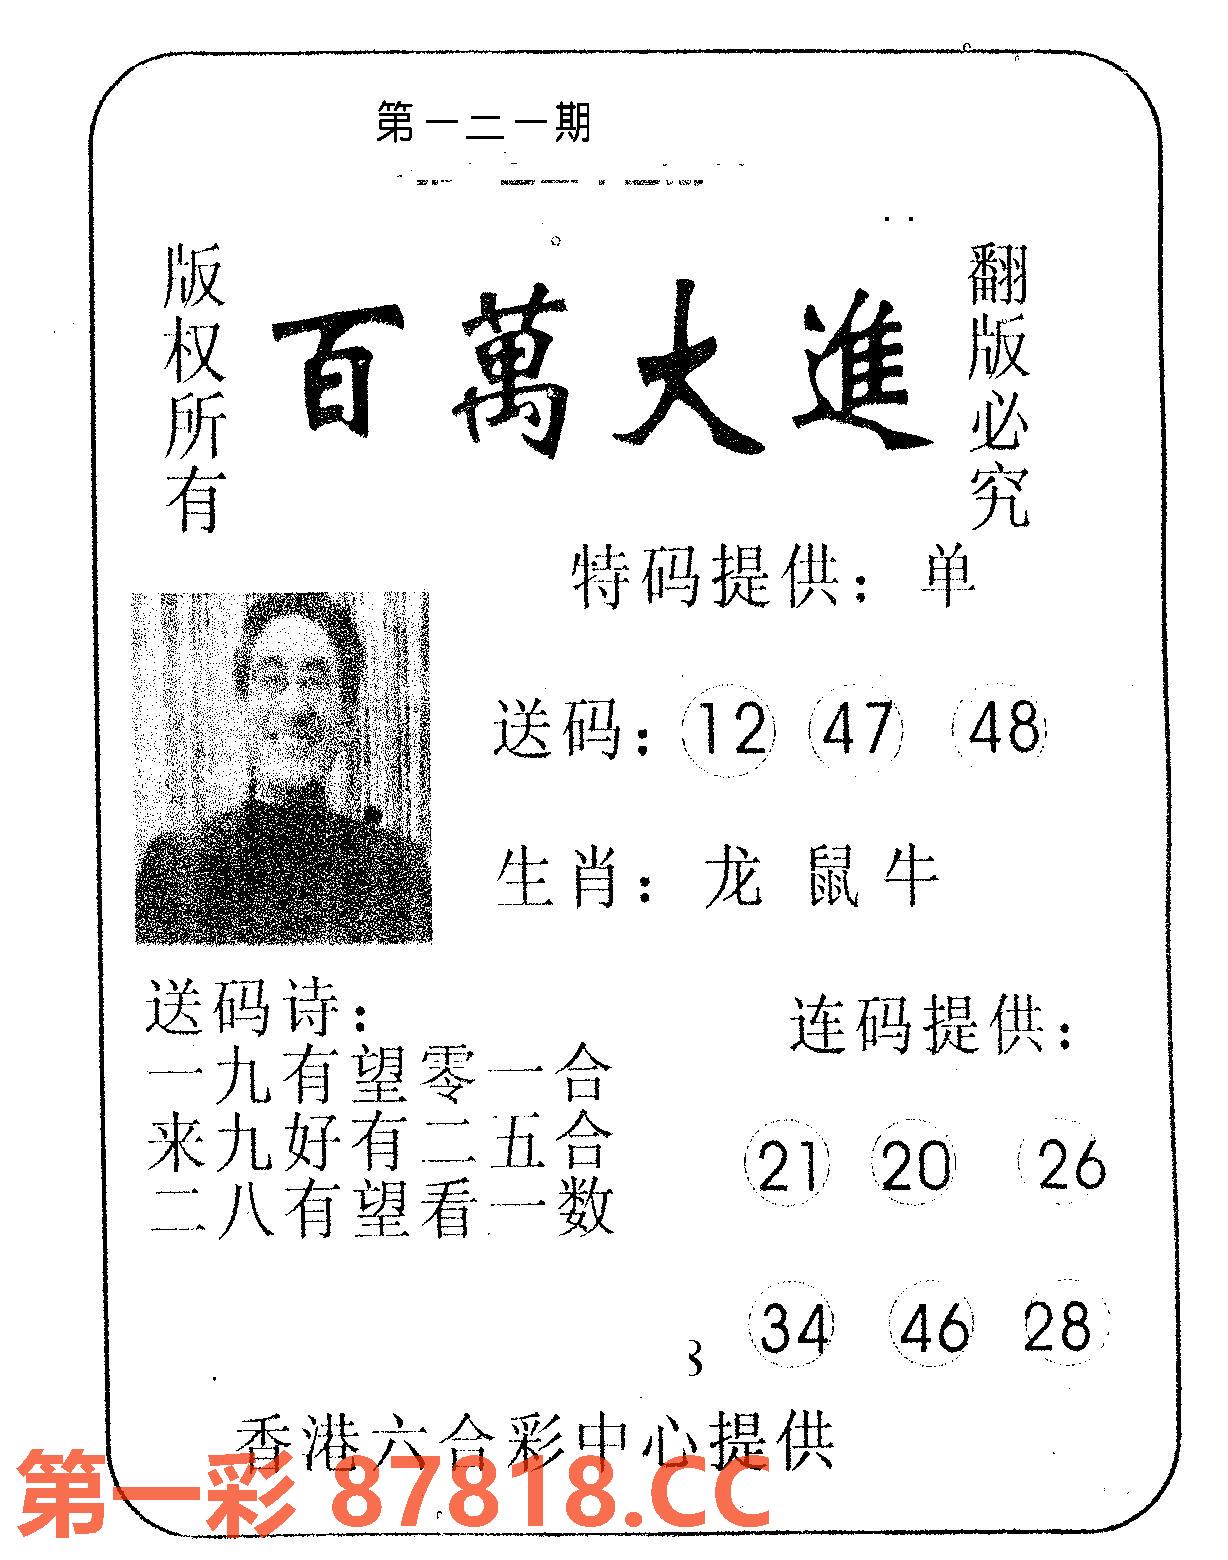 第一二一期
版权所有
百萬大進
翻版必究
特码提供：单
送码：12 47 48
生肖：龙 鼠 牛
送码诗：
一九有望零一合
来九好有二五合
二八有望看一数
连码提供：
21 20 26
34 46 28
香港六合彩中心提供
第一彩 87818.CC